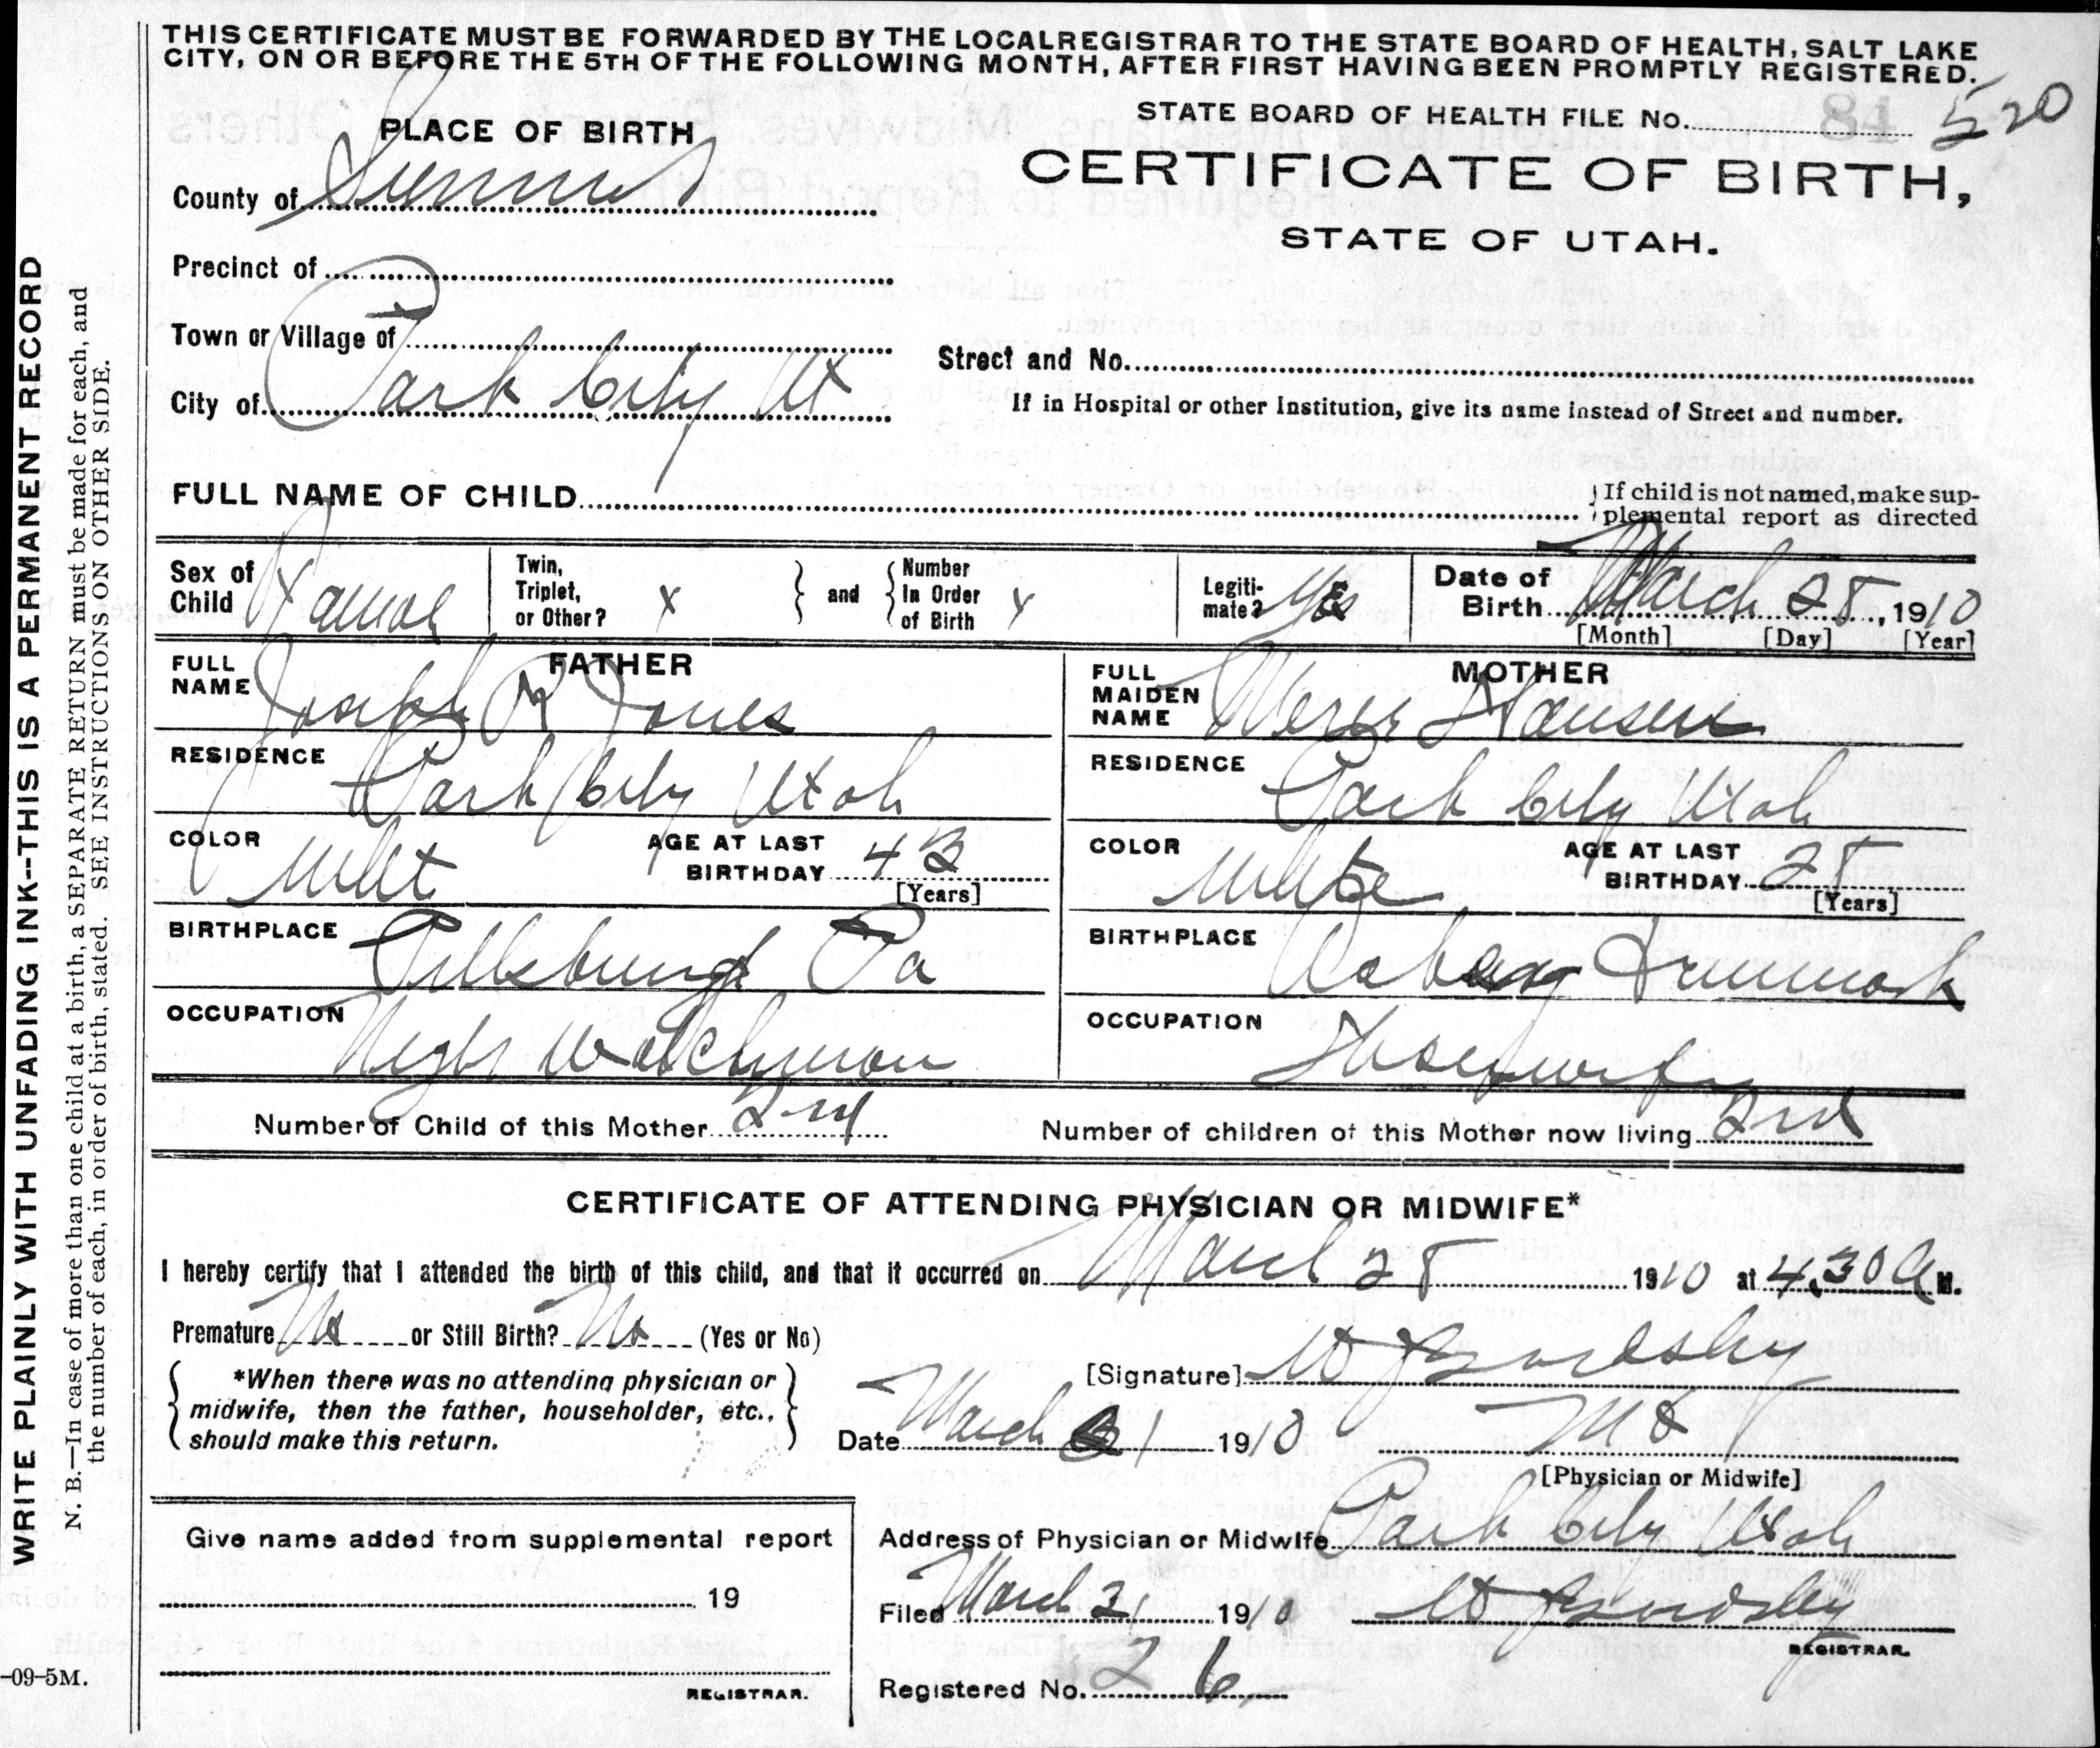 THIS CERTIFICATE MUST BE FORWARDED BY THE LOCAL REGISTRAR TO THE STATE BOARD OF HEALTH, SALT LAKE
CITY, ON OR BEFORE THE 5TH OF THE FOLLOWING MONTH, AFTER FIRST HAVING BEEN PROMPTLY REGISTERED.
STATE BOARD OF HEALTH FILE No. 84 520
PLACE OF BIRTH
CERTIFICATE OF BIRTH,
STATE OF UTAH.
County of Summit
Precinct of
Town or Village of
Street and No.
City of Park City Ut
If in Hospital or other Institution, give its name instead of Street and number.
FULL NAME OF CHILD
If child is not named, make sup-
plemental report as directed
Sex of Child
Twin, Triplet, or Other? x and Number In Order of Birth x
Legiti-mate? Yes
Date of Birth March 28, 1910
[Month] [Day] [Year]
FATHER
FULL NAME Joseph R Jones
RESIDENCE Park City Utah
COLOR
AGE AT LAST BIRTHDAY 43
[Years]
BIRTHPLACE Pittsburgh Pa
OCCUPATION Night Watchman
MOTHER
FULL MAIDEN NAME Hansen
RESIDENCE Park City Utah
COLOR White
AGE AT LAST BIRTHDAY 28
[Years]
BIRTHPLACE
OCCUPATION
Number of Child of this Mother 2nd
Number of children of this Mother now living 2nd
CERTIFICATE OF ATTENDING PHYSICIAN OR MIDWIFE*
I hereby certify that I attended the birth of this child, and that it occurred on March 28 1910 at 4.30 A M.
Premature No or Still Birth? No (Yes or No)
*When there was no attending physician or
midwife, then the father, householder, etc.,
should make this return.
[Signature]
Date March 31 1910
[Physician or Midwife]
Address of Physician or Midwife Park City Utah
Filed March 31 1910
REGISTRAR.
Registered No. 26
Give name added from supplemental report
19
REGISTRAR.
WRITE PLAINLY WITH UNFADING INK--THIS IS A PERMANENT RECORD
N. B.—In case of more than one child at a birth, a SEPARATE RETURN must be made for each, and
the number of each, in order of birth, stated. SEE INSTRUCTIONS ON OTHER SIDE.
-09-5M.